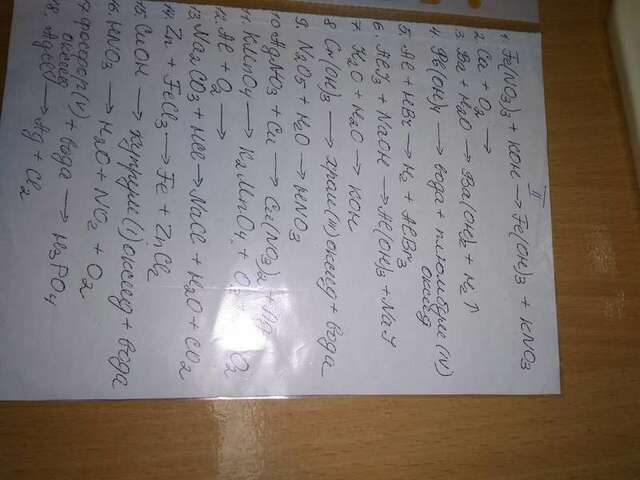 II
1. Fe(NO3)3 + KOH → Fe(OH)3 + KNO3
2 Ca + O2 →
3 Ba + H2O → Ba(OH)2 + H2↑
4 Pb(OH)4 → вода + плюмбум (IV)
оксид
5. Al + HBr → H2 + AlBr3
6. AlI3 + NaOH → Al(OH)3 + NaI
7. K2O + H2O → KOH
8 Cr(OH)3 → хром(III) оксид + вода
9. N2O5 + H2O → HNO3
10 AgNO3 + Cu → Cu(NO3)2 + Ag
11. KMnO4 → K2MnO4 + O2
12. Al + O2 →
13 Na2CO3 + HCl → NaCl + H2O + CO2
14. Zn + FeCl3 → Fe + ZnCl2
15. CuOH → купрум (I) оксид + вода
16. HNO3 → H2O + NO2 + O2
17 фосфор(V) + вода → H3PO4
оксид
18. AgCl → Ag + Cl2